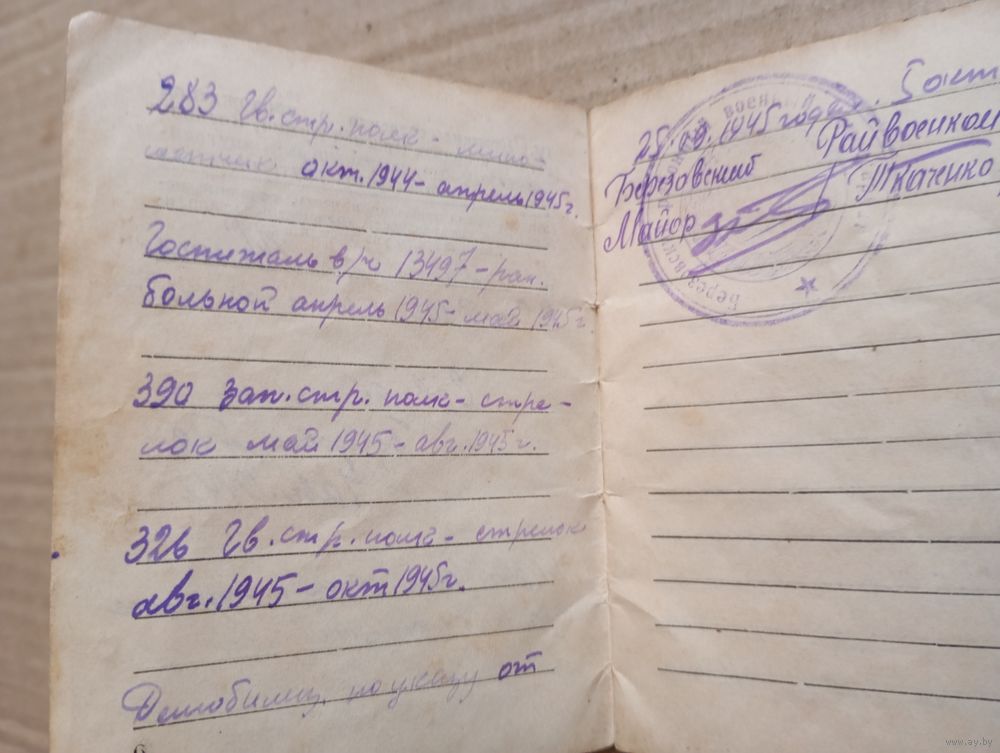 283 Гв. стр. полк - мино-
метчик окт. 1944 - апрель 1945г.
Госпиталь в/ч 13497 - ран.
больной апрель 1945 - май 1945г.
390 зап. стр. полк - стре-
лок май 1945 - авг. 1945г.
326 Гв. стр. полк - стрелок
авг. 1945 - окт 1945г.
Демобилиз. по указу от
6
25. 09. 1945 года.
Березовский Райвоенком
Майор Ткаченко
www.ay.by